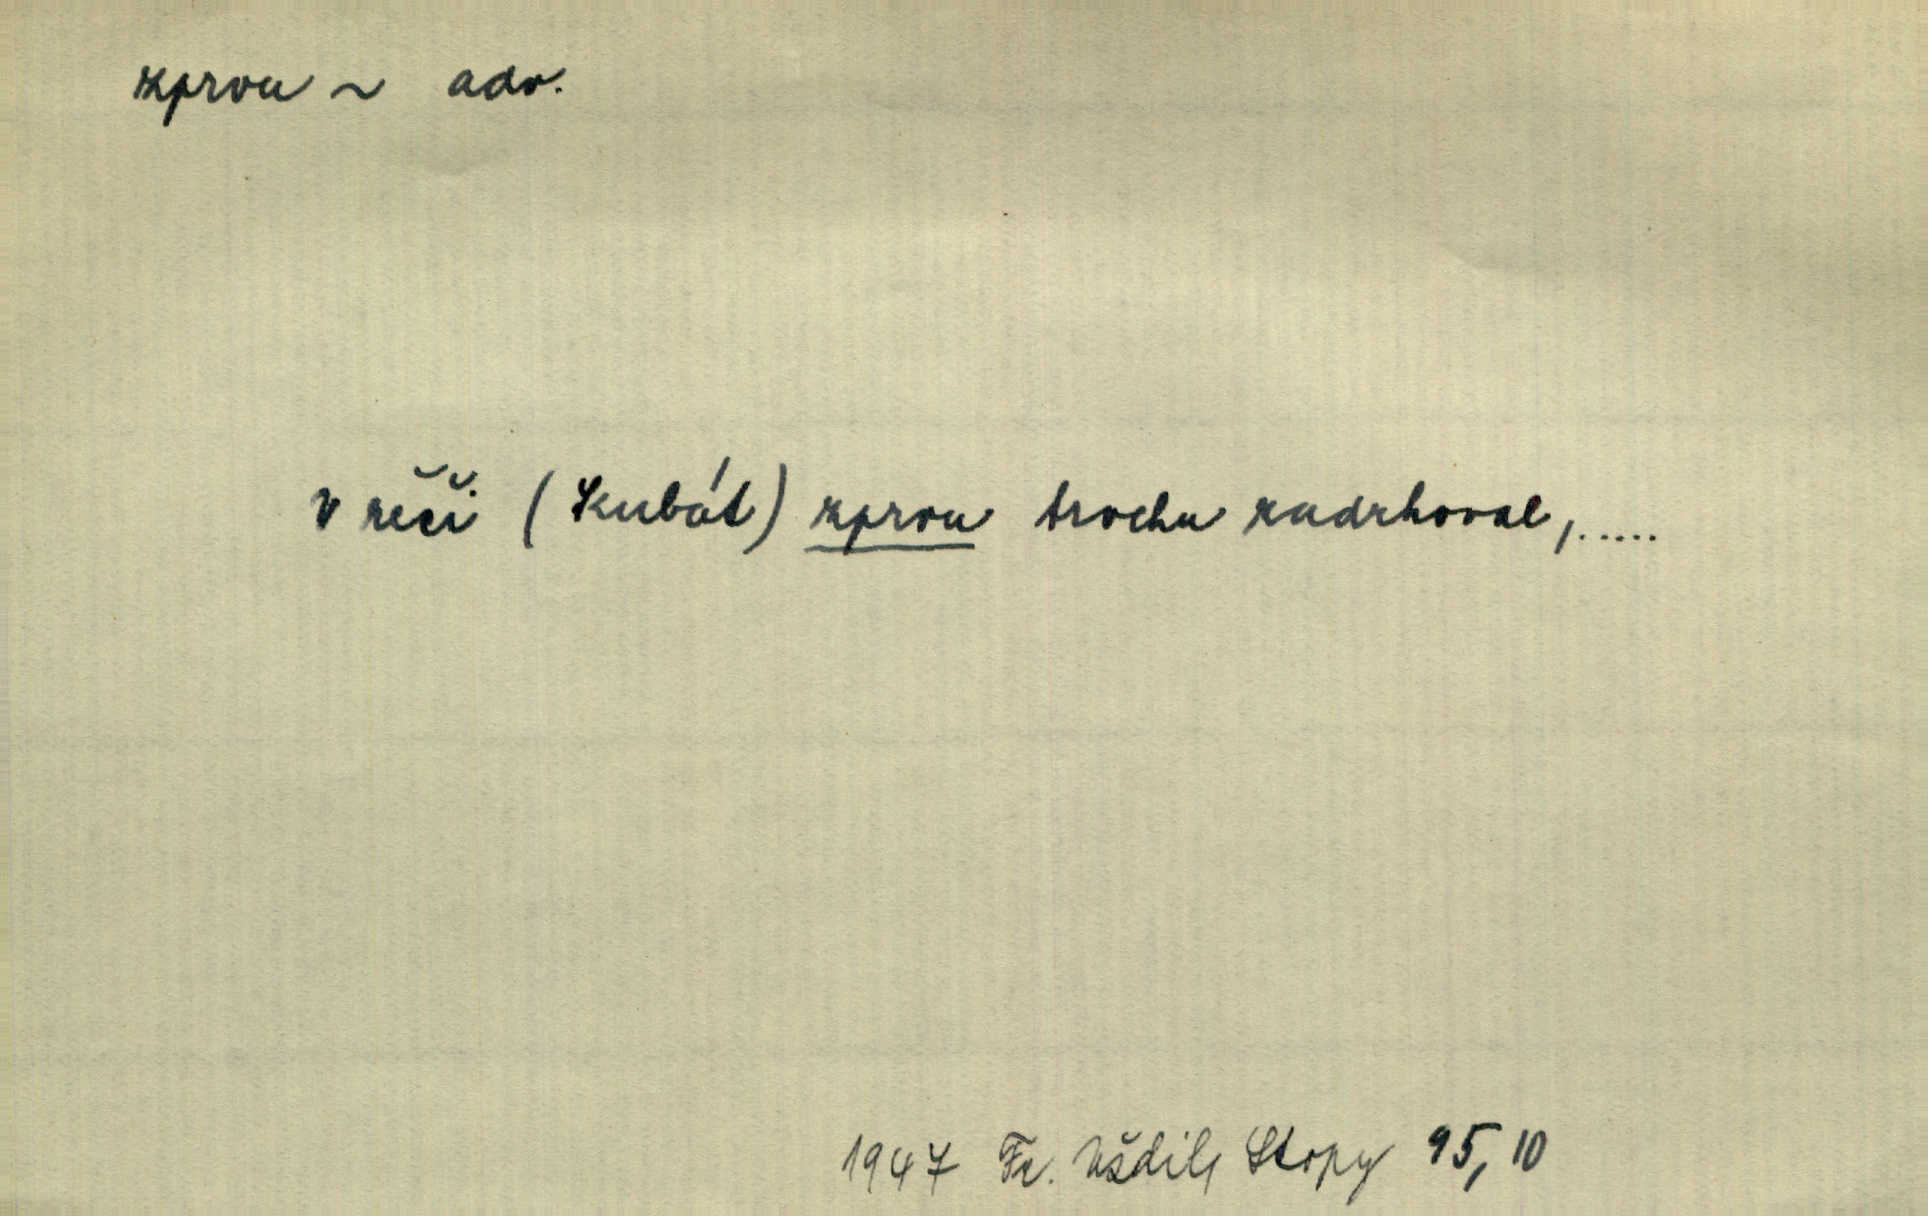 zprvu ~ adv.
v řeči (Kubát) zprvu trochu zadrhoval,.....
1947 Fr. Uždil, Stopy 95, 10